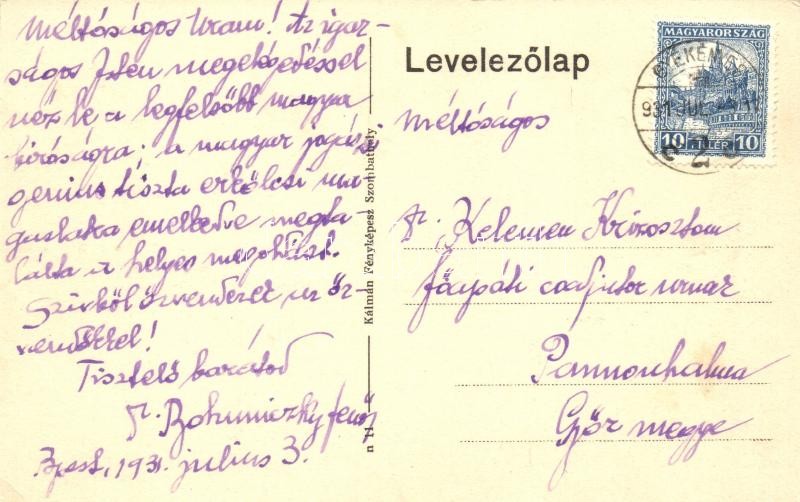 Méltóságos Uram! Az igaz-
ságos Isten megelégedéssel
néz le a legfelsőbb magyar
bíróságra; a magyar jogász
genius tiszta erkölcsi ma-
gaslatra emelkedve megta-
lálta a helyes megoldást.
Szívből örvendezek az ör-
vendőkkel!
Tisztelő barátod
Dr. Bohuniczky Jenő
Bpest, 1931. július 3.
n 11
Kálmán Fényképesz Szombathely
Levelezőlap
MAGYARORSZÁG
10 FILLÉR 10
931 JUL
Méltóságos
Dr. Kelemen Krizosztom
főapáti coadjutor urnak
Pannonhalma
Győr megye